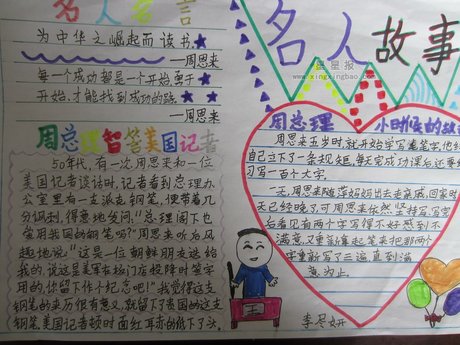 名人名言
为中华之崛起而读书★
——周恩来
每一个成功都是一个开始,勇于
开始,才能找到成功的路。
——周恩来
周总理智笔美国记者
50年代,有一次周恩来和一位
美国记者谈话时,记者看到总理办
公室里有一支派克钢笔,便带着几
分讽刺,得意地发问:"总理阁下也
使用我国的钢笔吗?"周恩来听后风
趣地说:"这是一位朝鲜朋友送给
我的,说这是美军在板门店投降时签字
用的,你留下作个纪念吧!"我觉得这支
钢笔的来历很有意义,就留下了贵国的这支
钢笔.美国记者顿时面红耳赤的低下了头。
名人故事
星星报
www.xingxingbao.com
周总理 小时候的故
周恩来五岁时,就开始学写毛笔字,他给
自己立下了一条规矩,每天完成功课后还要练
习写一百个大字。
一天,周恩来随
天已经晚了,可周恩来依然坚持写
后看见有两个字写得不好感到不
满意,又重新拿起笔来把那两个
字重新写了三遍,直到满
意为止。
王